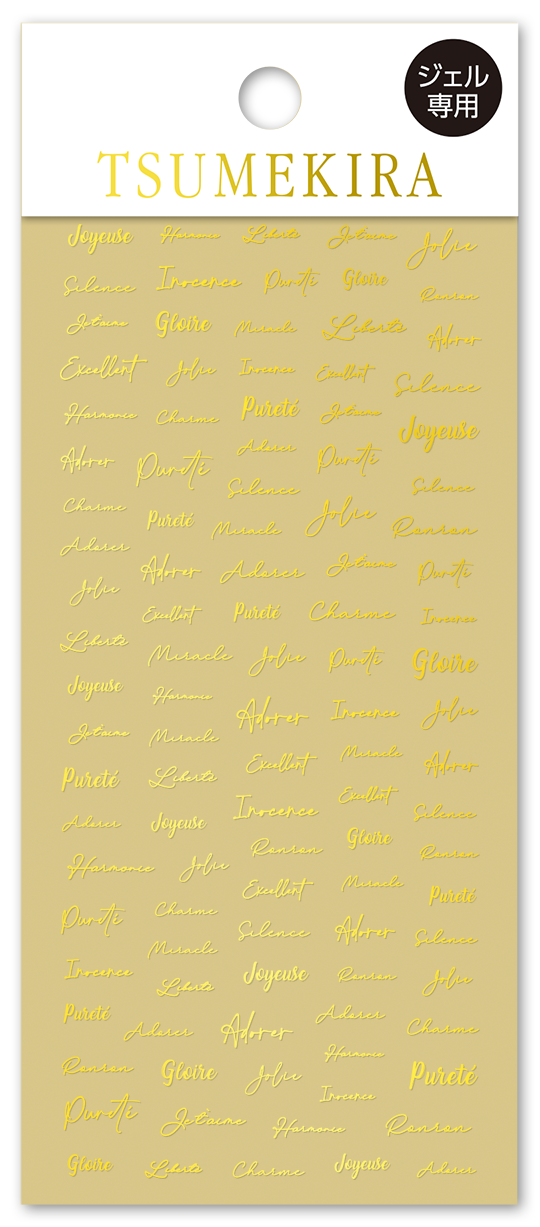 ジェル
専用
TSUMEKIRA
Joyeuse Harmonie Liberté Je t'aime Jolie
Silence Inocence Pureté Gloire Ronron
Je t'aime Gloire Miracle Liberté Adorer
Excellent Jolie Inocence Excellent Silence
Harmonie Charme Pureté Je t'aime Joyeuse
Adorer Pureté Adorer Pureté
Charme Silence Silence
Pureté Miracle Jolie Ronron
Adorer Adorer Adorer Je t'aime Pureté
Jolie Excellent Pureté Charme Inocence
Liberté Miracle Jolie Pureté Gloire
Joyeuse Harmonie Adorer Inocence Jolie
Je t'aime Miracle Excellent Miracle Adorer
Pureté Liberté Inocence Excellent Silence
Adorer Joyeuse Ronron Gloire Ronron
Harmonie Jolie Excellent Miracle Pureté
Pureté Charme Silence Adorer Silence
Miracle
Inocence Liberté Joyeuse Ronron Jolie
Pureté Adorer Adorer Adorer Charme
Harmonie
Ronron Gloire Jolie Inocence Pureté
Pureté Je t'aime Harmonie Ronron
Gloire Liberté Charme Joyeuse Adorer